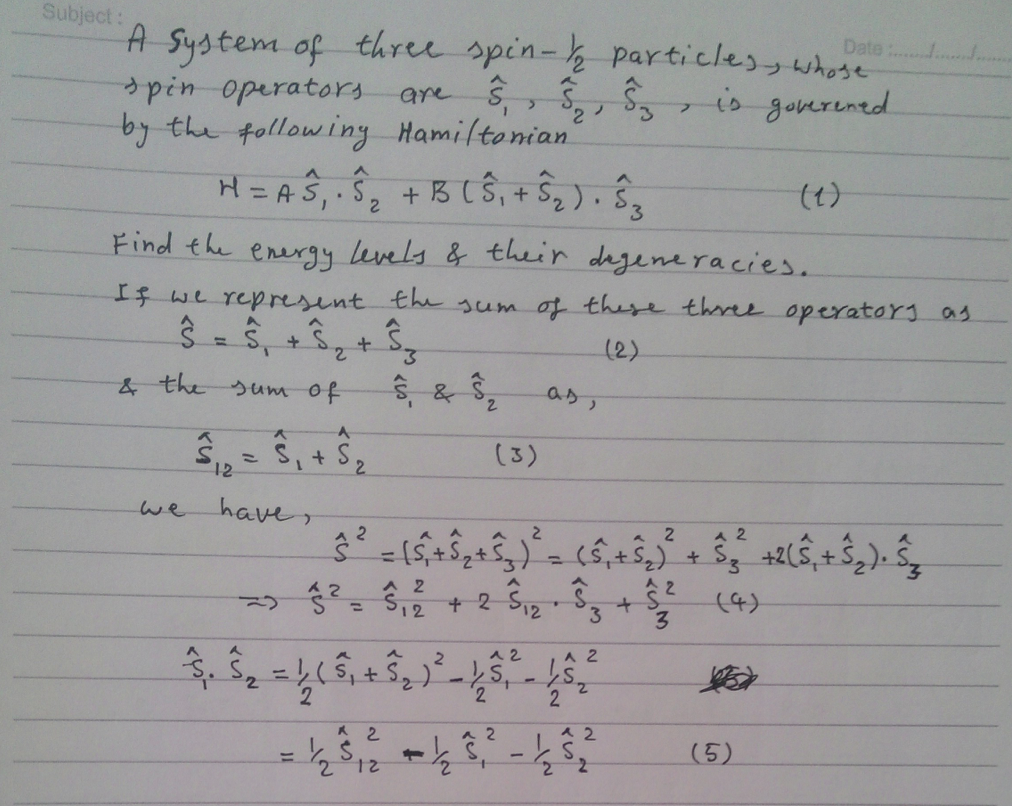 Subject :
Date :....../....../......
A System of three spin-½ particles, whose
spin operators are Ŝ₁, Ŝ₂, Ŝ₃, is goverened
by the following Hamiltonian
H = A Ŝ₁ · Ŝ₂ + B (Ŝ₁ + Ŝ₂) · Ŝ₃ (1)
Find the energy levels & their degeneracies.
If we represent the sum of these three operators as
Ŝ = Ŝ₁ + Ŝ₂ + Ŝ₃ (2)
& the sum of Ŝ₁ & Ŝ₂ as,
Ŝ₁₂ = Ŝ₁ + Ŝ₂ (3)
we have,
Ŝ² = (Ŝ₁+Ŝ₂+Ŝ₃)² = (Ŝ₁+Ŝ₂)² + Ŝ₃² +2(Ŝ₁+Ŝ₂)· Ŝ₃
=> Ŝ² = Ŝ₁₂² + 2 Ŝ₁₂ · Ŝ₃ + Ŝ₃² (4)
Ŝ₁· Ŝ₂ = ½ (Ŝ₁ + Ŝ₂)² - ½ Ŝ₁² - ½ Ŝ₂²
= ½ Ŝ₁₂² - ½ Ŝ₁² - ½ Ŝ₂² (5)